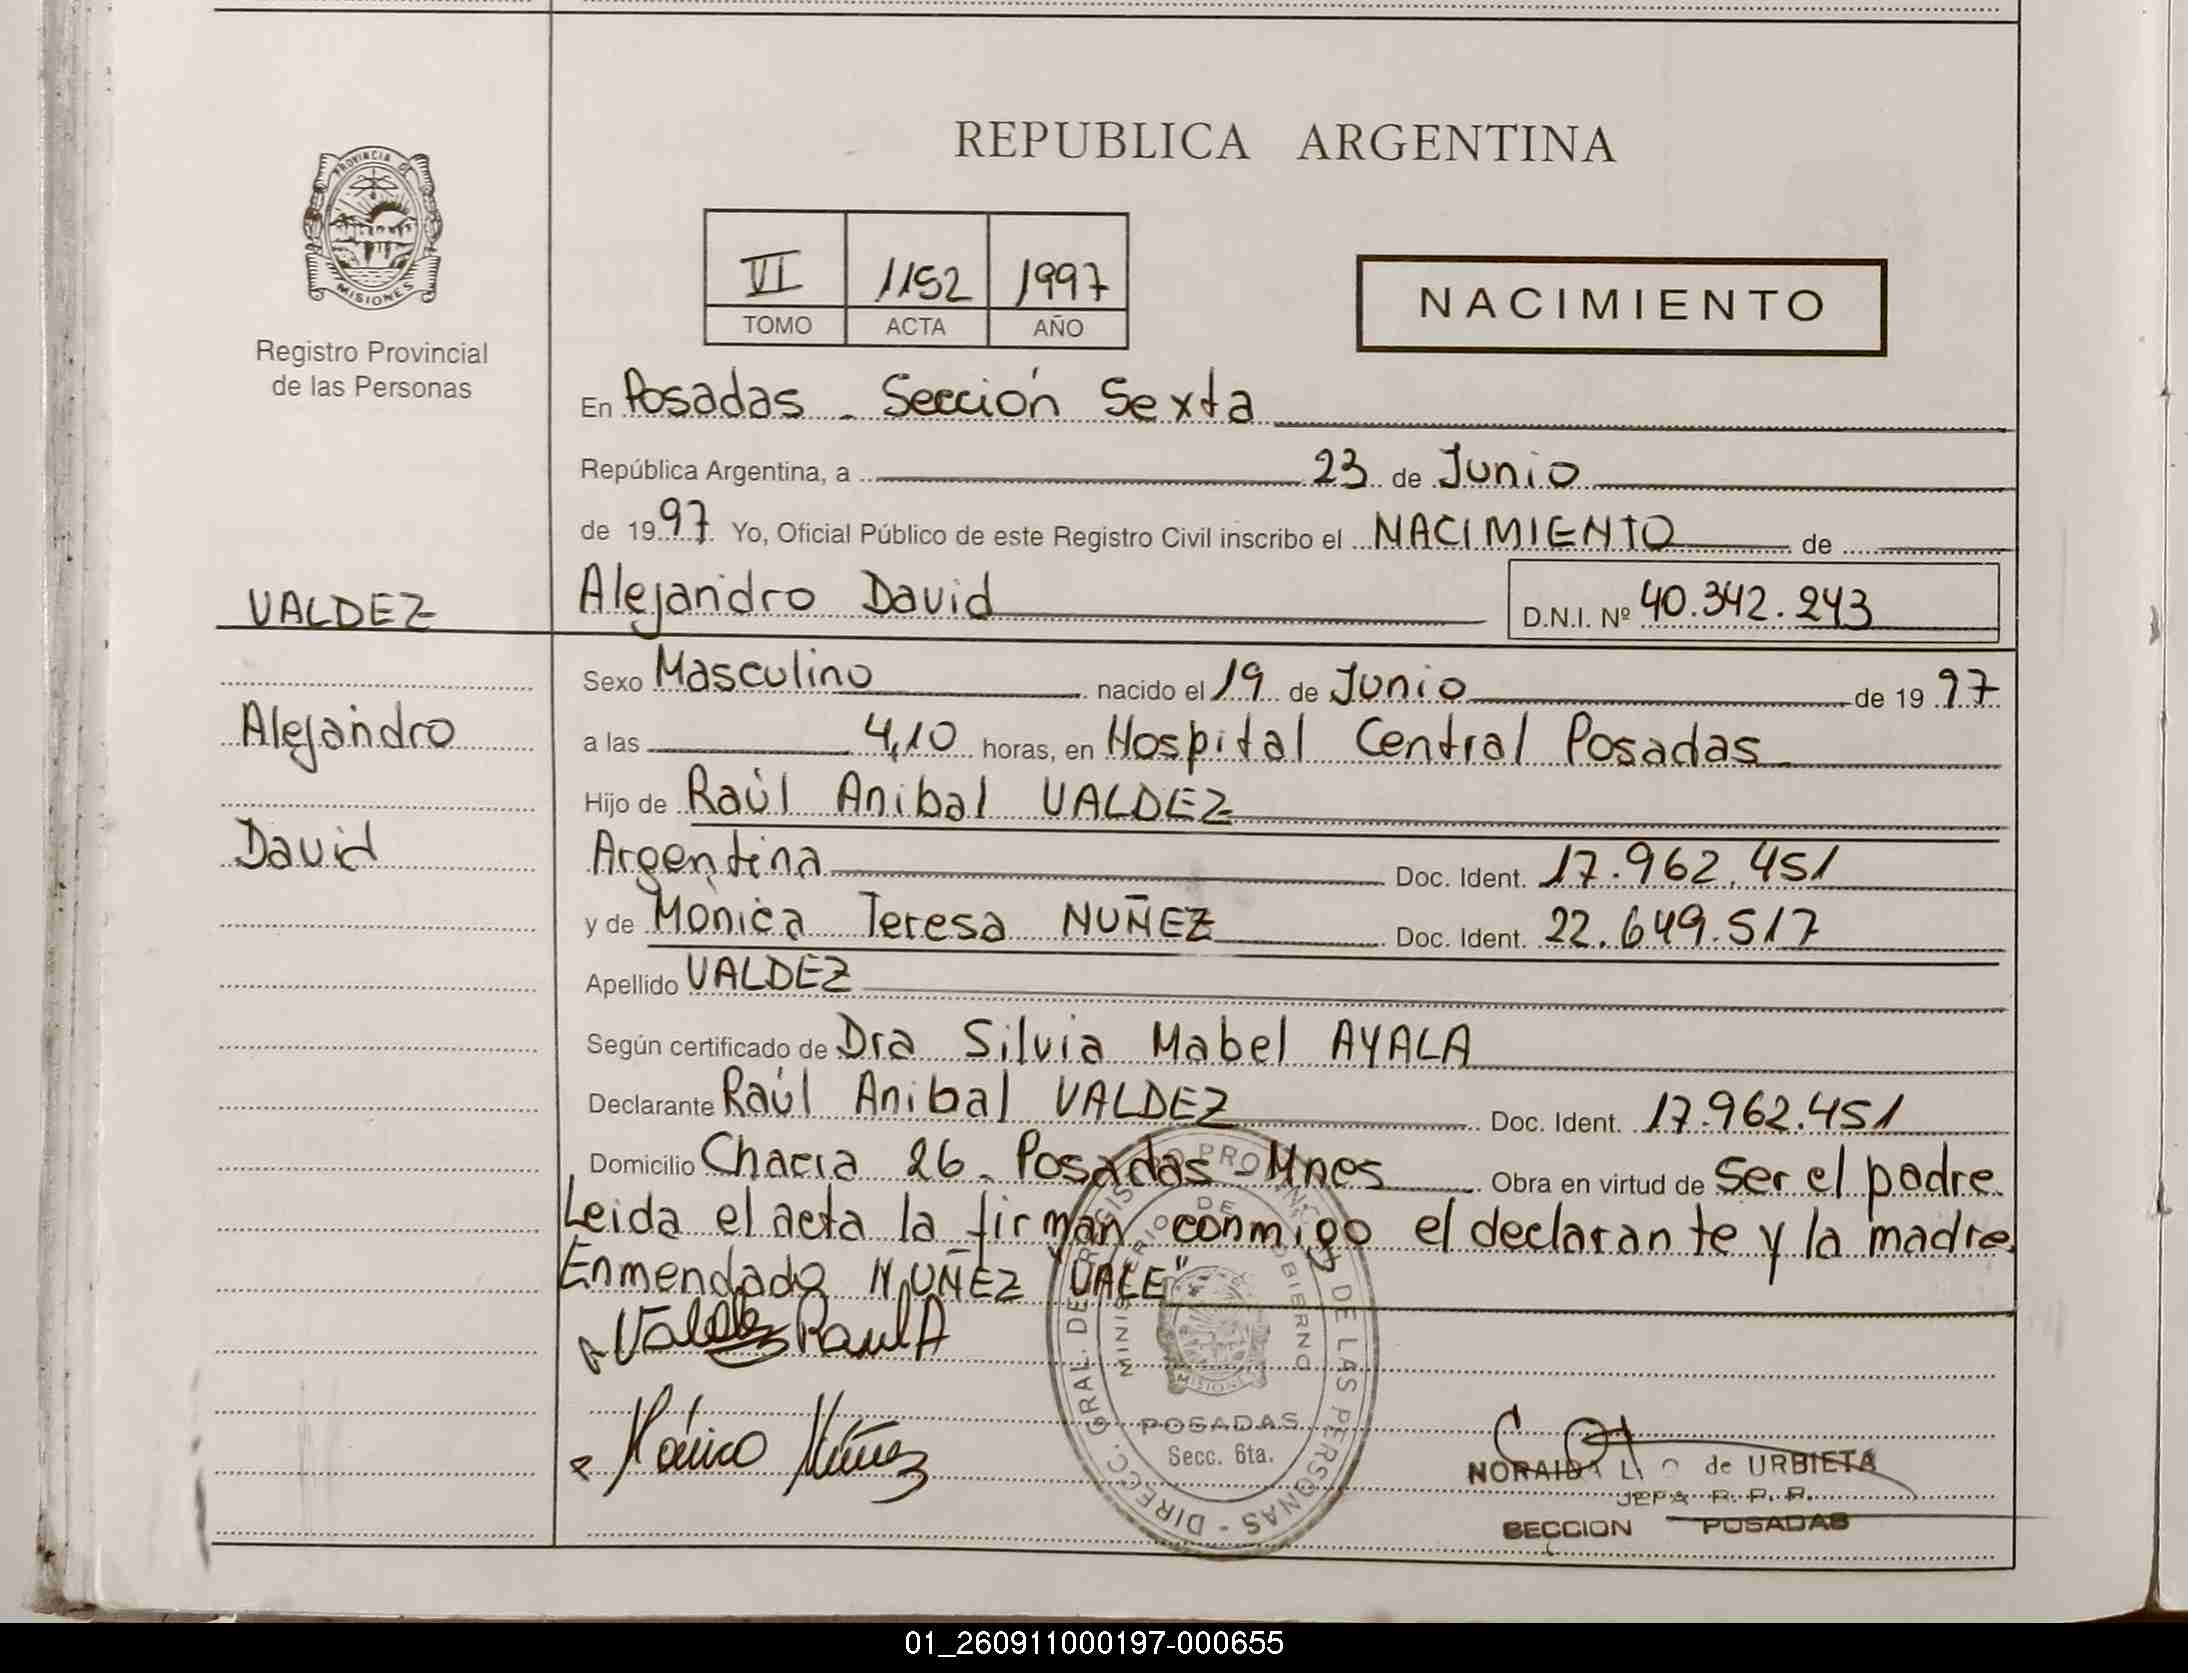 PROVINCIA DE
MISIONES
Registro Provincial
de las Personas
REPUBLICA ARGENTINA
VI 1152 1997
TOMO ACTA AÑO
NACIMIENTO
En Posadas - Sección Sexta
República Argentina, a 23 de Junio
de 1997 Yo, Oficial Público de este Registro Civil inscribo el NACIMIENTO de
VALDEZ
Alejandro David D.N.I. Nº 40.342.243
Sexo Masculino nacido el 19 de Junio de 1997
Alejandro
a las 4,10 horas, en Hospital Central Posadas
Hijo de Raúl Anibal VALDEZ
David
Argentina Doc. Ident. 17.962.451
y de Mónica Teresa NUÑEZ Doc. Ident. 22.649.517
Apellido VALDEZ
Según certificado de Dra Silvia Mabel AYALA
Declarante Raúl Anibal VALDEZ Doc. Ident. 17.962.451
Domicilio Chacra 26 - Posadas - Mnes Obra en virtud de ser el padre
Leida el acta la firman conmigo el declarante y la madre
Enmendado NUÑEZ "VALE"
Valdez Raul A
Mónica Núñez
DIRECC. GRAL. DE REGISTRO PROVINC. DE LAS PERSONAS
MINISTERIO DE GOBIERNO
MISIONES
POSADAS
Secc. 6ta.
NORAIDA de URBIETA
JEFA R. P. P.
SECCION POSADAS
01_260911000197-000655